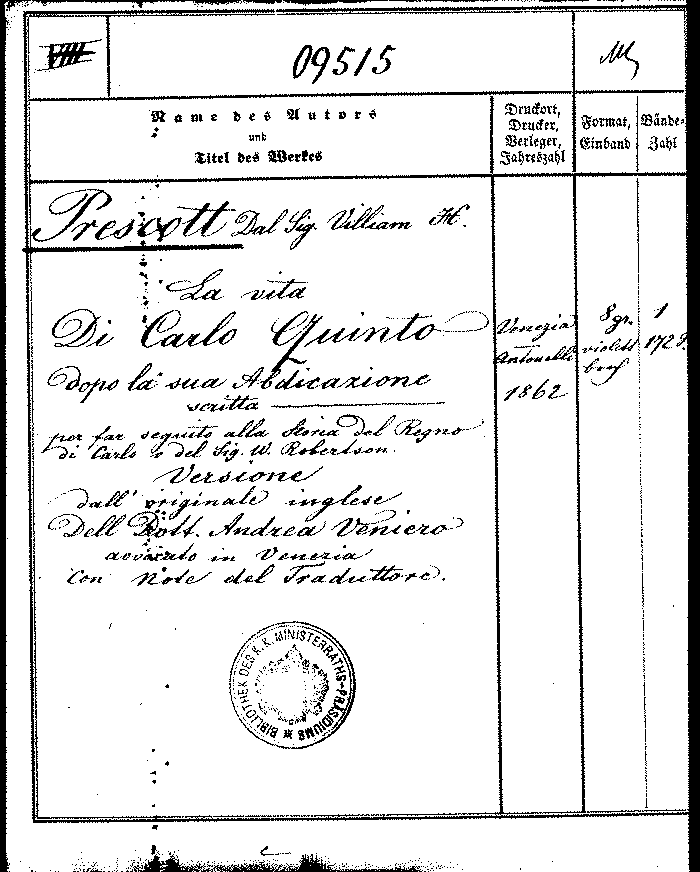 VIII
09515
Name des Autors
und
Titel des Werkes
Druckort,
Drucker,
Verleger,
Jahreszahl
Format,
Einband
Bände-
Zahl
Prescott Dal Sig. Villiam H.
La vita
Di Carlo Quinto
dopo la sua Abdicazione
scritta
per far seguito alla Storia del Regno
di Carlo v del Sig. W. Robertson.
Versione
dall' originale inglese
Dell Dott. Andrea Veniero
avvocato in Venezia
con Note del Traduttore.
Venezia
Antonelli
1862
8 gr.
violett
1
172 S.
BIBLIOTHEK DES K.K. MINISTERRATHS-PRÄSIDIUMS